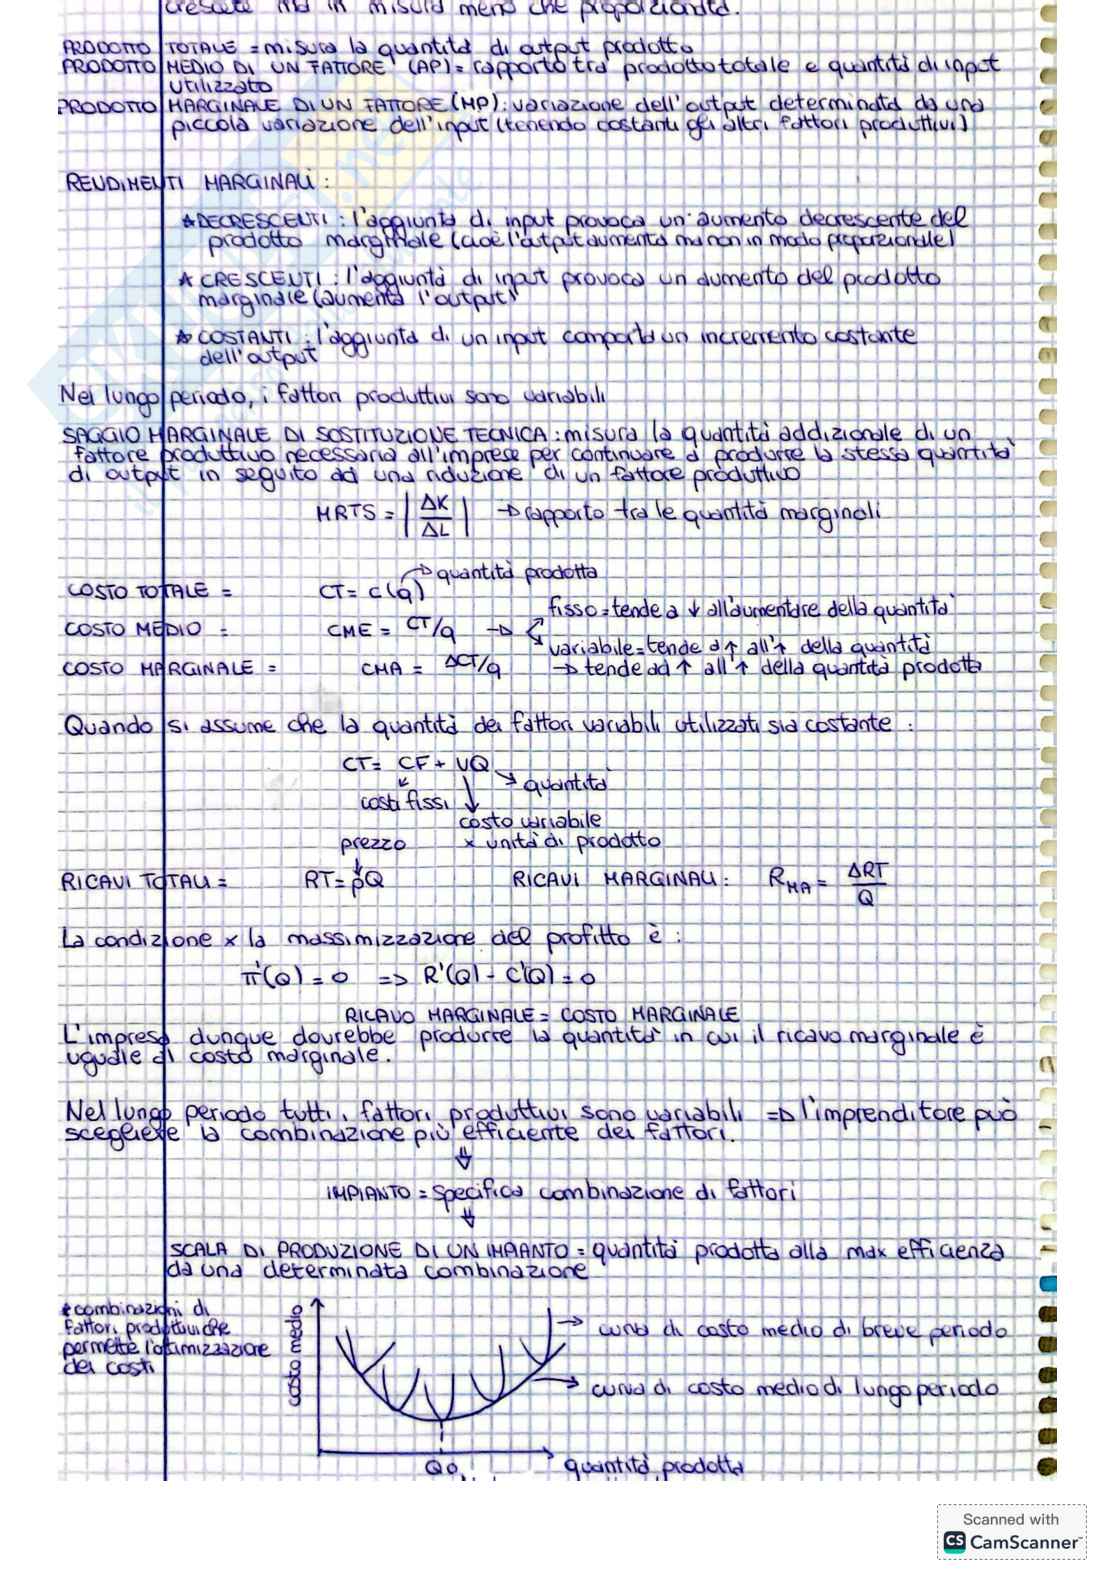 crescere ma in misura meno che proporzionata.
PRODOTTO TOTALE = misura la quantità di output prodotto
PRODOTTO MEDIO DI UN FATTORE (AP) = rapporto tra prodotto totale e quantità di input
utilizzato
PRODOTTO MARGINALE DI UN FATTORE (MP): variazione dell'output determinata da una
piccola variazione dell'input (tenendo costanti gli altri fattori produttivi)
RENDIMENTI MARGINALI :
* DECRESCENTI : l'aggiunta di input provoca un aumento decrescente del
prodotto marginale (cioè l'output aumenta ma non in modo proporzionale)
* CRESCENTI : l'aggiunta di input provoca un aumento del prodotto
marginale (aumenta l'output)
* COSTANTI : l'aggiunta di un input comporta un incremento costante
dell'output
Nel lungo periodo, i fattori produttivi sono variabili
SAGGIO MARGINALE DI SOSTITUZIONE TECNICA : misura la quantità addizionale di un
fattore produttivo necessaria all'imprese per continuare a produrre la stessa quantità
di output in seguito ad una riduzione di un fattore produttivo
MRTS = |ΔK/ΔL| → rapporto tra le quantità marginali
→ quantità prodotta
COSTO TOTALE = CT = c(q)
fisso = tende a ↓ all'aumentare della quantità
COSTO MEDIO = CME = CT/q →
variabile = tende a ↑ all'↑ della quantità
COSTO MARGINALE = CMA = ΔCT/q → tende ad ↑ all'↑ della quantità prodotta
Quando si assume che la quantità dei fattori variabili utilizzati sia costante :
CT = CF + VQ
quantità
costi fissi
costo variabile
prezzo x unità di prodotto
RICAVI TOTALI = RT = pQ RICAVI MARGINALI : RMA = ΔRT/Q
La condizione x la massimizzazione del profitto è :
π'(Q) = 0 => R'(Q) - C'(Q) = 0
RICAVO MARGINALE = COSTO MARGINALE
L'impresa dunque dovrebbe produrre la quantità in cui il ricavo marginale è
uguale al costo marginale.
Nel lungo periodo tutti i fattori produttivi sono variabili => l'imprenditore può
scegliere la combinazione più efficiente dei fattori.
⇓
IMPIANTO = specifica combinazione di fattori
⇓
SCALA DI PRODUZIONE DI UN IMPIANTO = quantità prodotta alla max efficienza
da una determinata combinazione
* combinazioni di
fattori produttivi che
permette l'ottimizzazione
dei costi
costo medio
→ curva di costo medio di breve periodo
→ curva di costo medio di lungo periodo
Qo
quantità prodotta
Scanned with
CS CamScanner